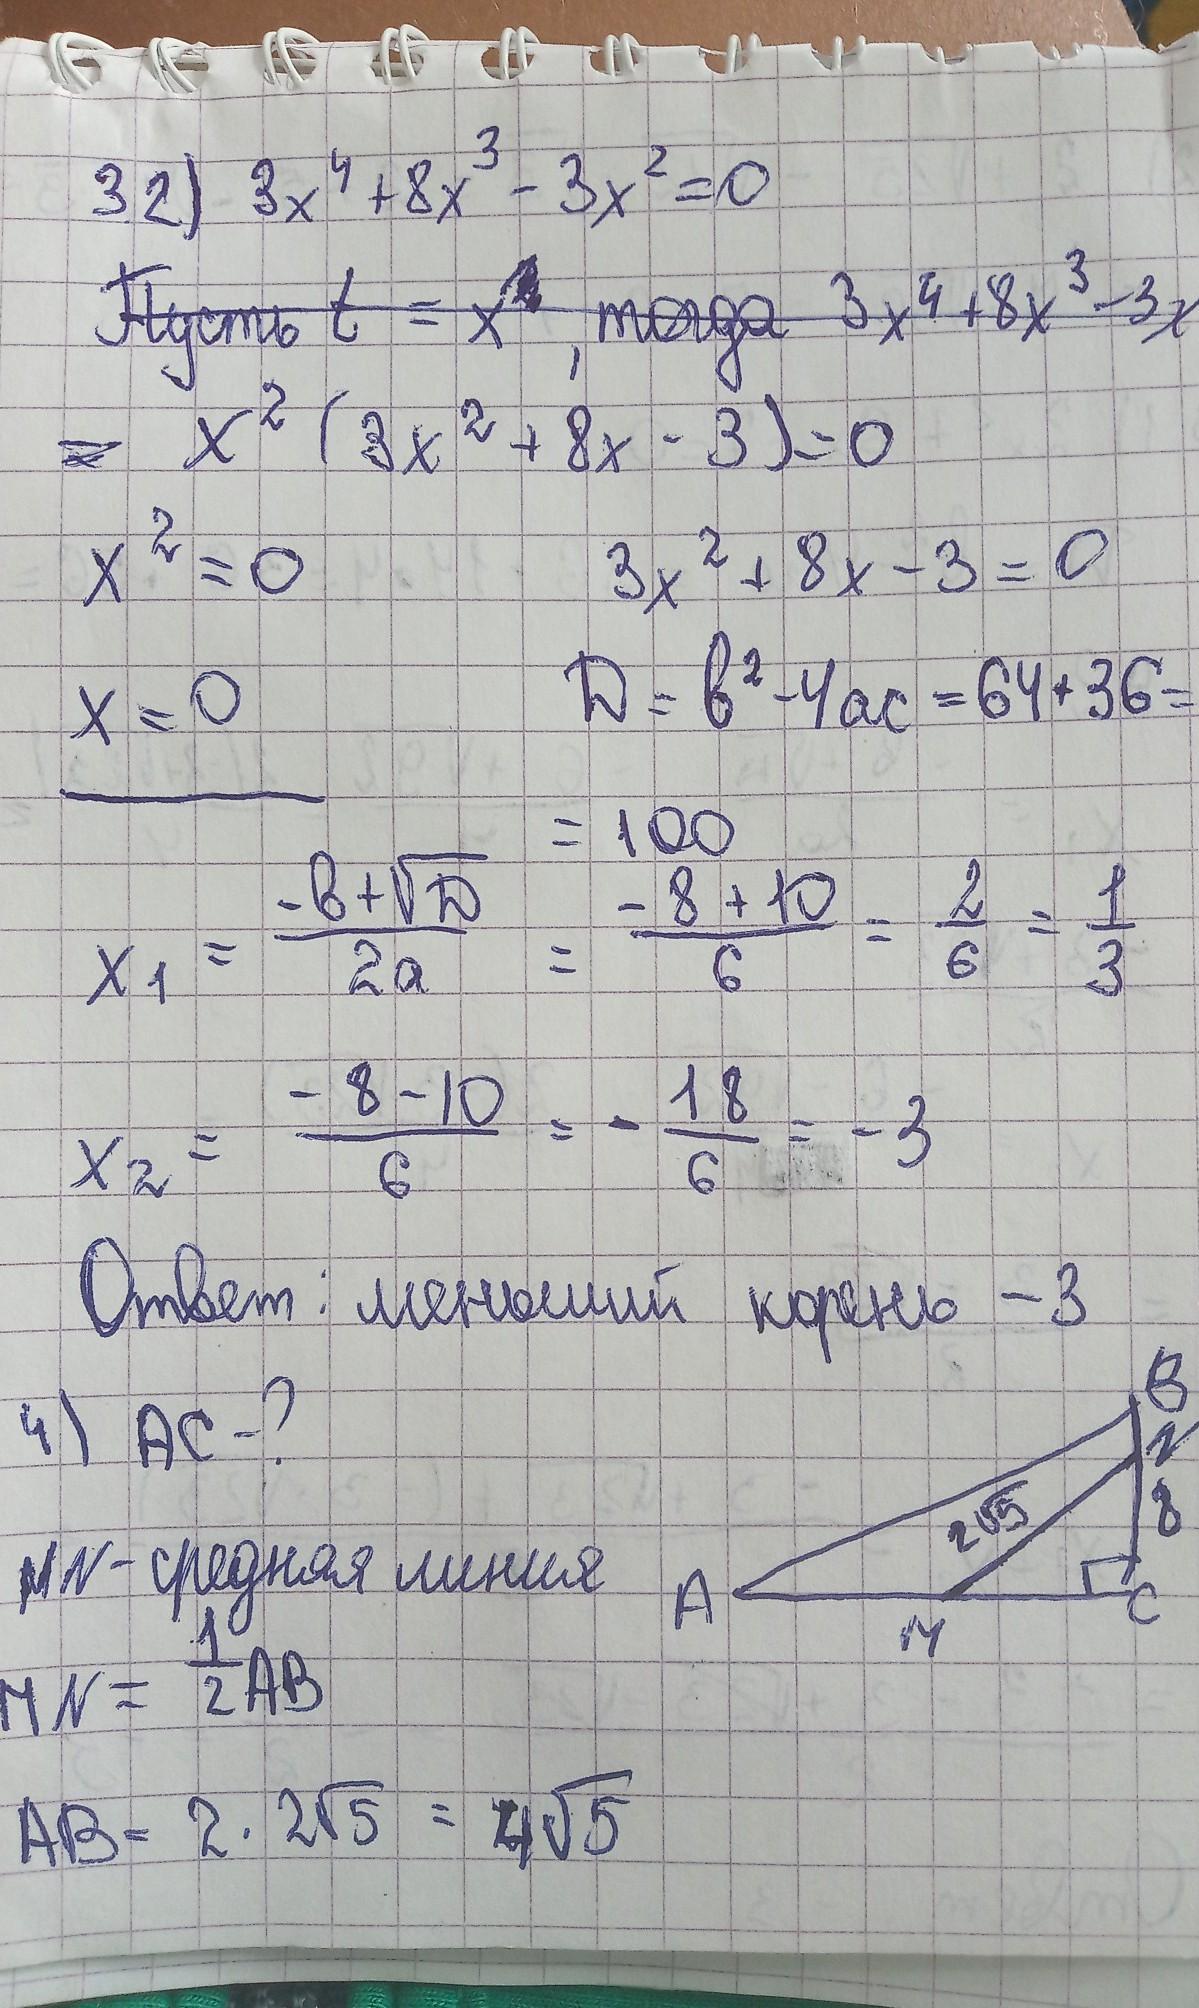 32) 3x⁴+8x³-3x²=0
Пусть t = x, тогда 3x⁴+8x³-3x
= x²(3x²+8x-3)=0
x²=0 3x²+8x-3=0
x=0 D=b²-4ac=64+36=
=100
x₁ = (-b+√D)/2a = (-8+10)/6 = 2/6 = 1/3
x₂ = (-8-10)/6 = -18/6 = -3
Ответ: меньший корень -3
4) AC-?
B
N
2√5
8
MN-средняя линия
A
C
M
MN = 1/2 AB
AB = 2·2√5 = 4√5